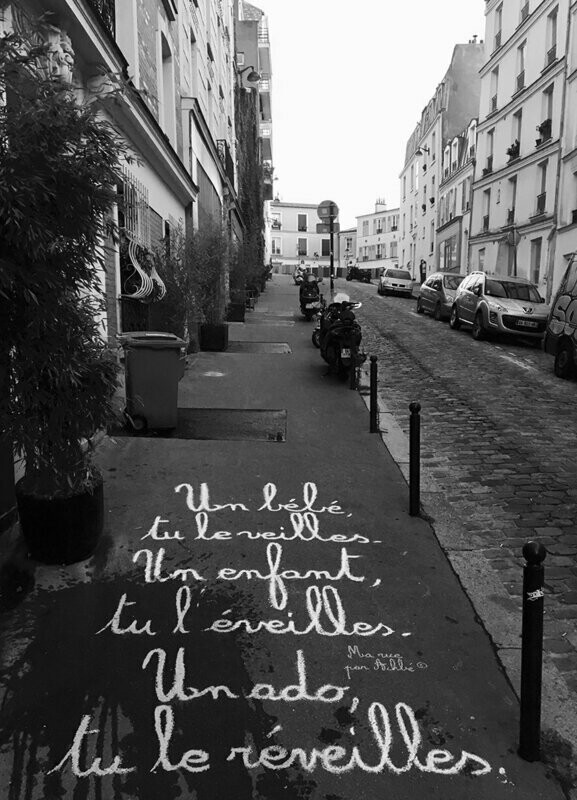 Un bébé,
tu le veilles.
Un enfant,
tu l'éveilles.
Un ado,
tu le réveilles.
Ma rue
par Achbé ©